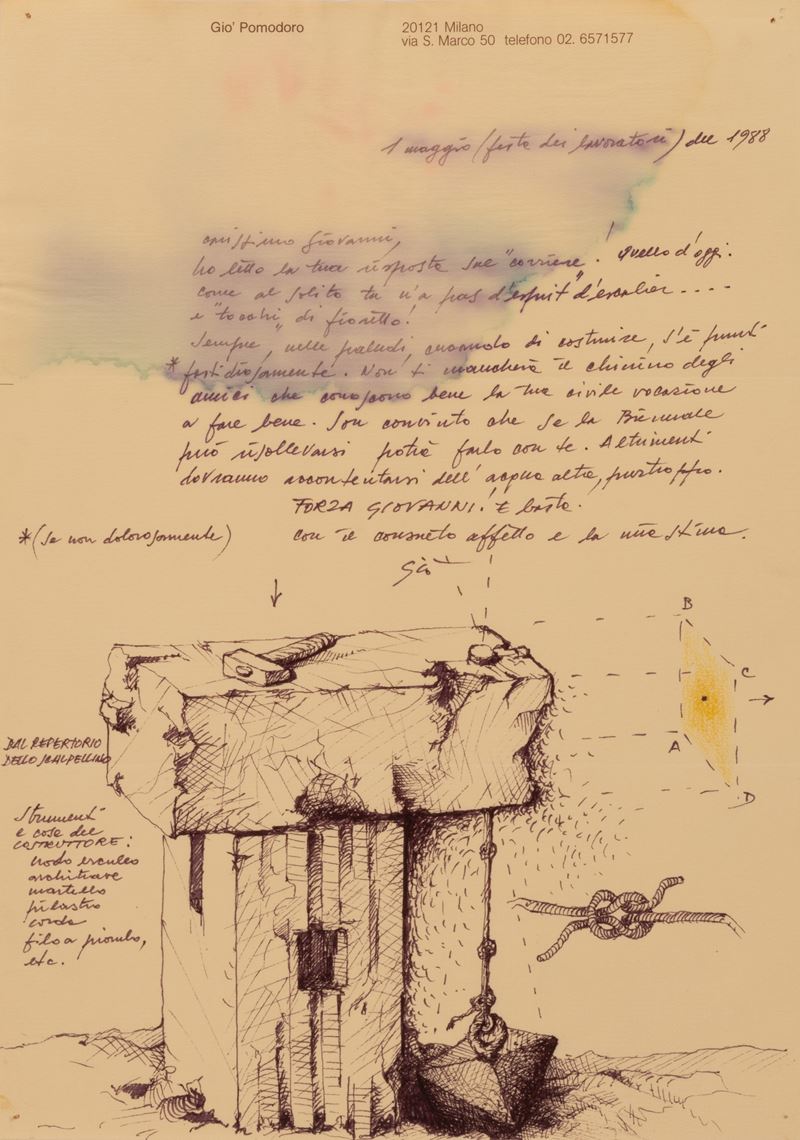 Gio' Pomodoro
20121 Milano
via S. Marco 50 telefono 02. 6571577
1 maggio (festa dei lavoratori) del 1988
carissimo Giovanni,
ho letto la tua risposta sul "corriere"! Quello d'oggi.
come al solito tu n'a pas d'esprit "d'escalier ----
e "tocchi" di fioretto!
Sempre, nelle paludi, quando di costruire, s'è punti
* fastidiosamente. Non ti mancherà il chinino degli
amici che conoscono bene la tua civile vocazione
a fare bene. Son convinto che se la Biennale
può risollevarsi potrà farlo con te. Altrimenti
dovranno accontentarsi dell'acqua alta, purtroppo.
FORZA GIOVANNI! E basta.
*(se non dolorosamente)
con il consueto affetto e la mia stima.
Giò
B
C
A
D
DAL REPERTORIO
DELLO SCALPELLINO
Strumenti
e cose del
COSTRUTTORE:
nodo erculeo
architrave
martello
pilastro
corda
filo a piombo,
etc.